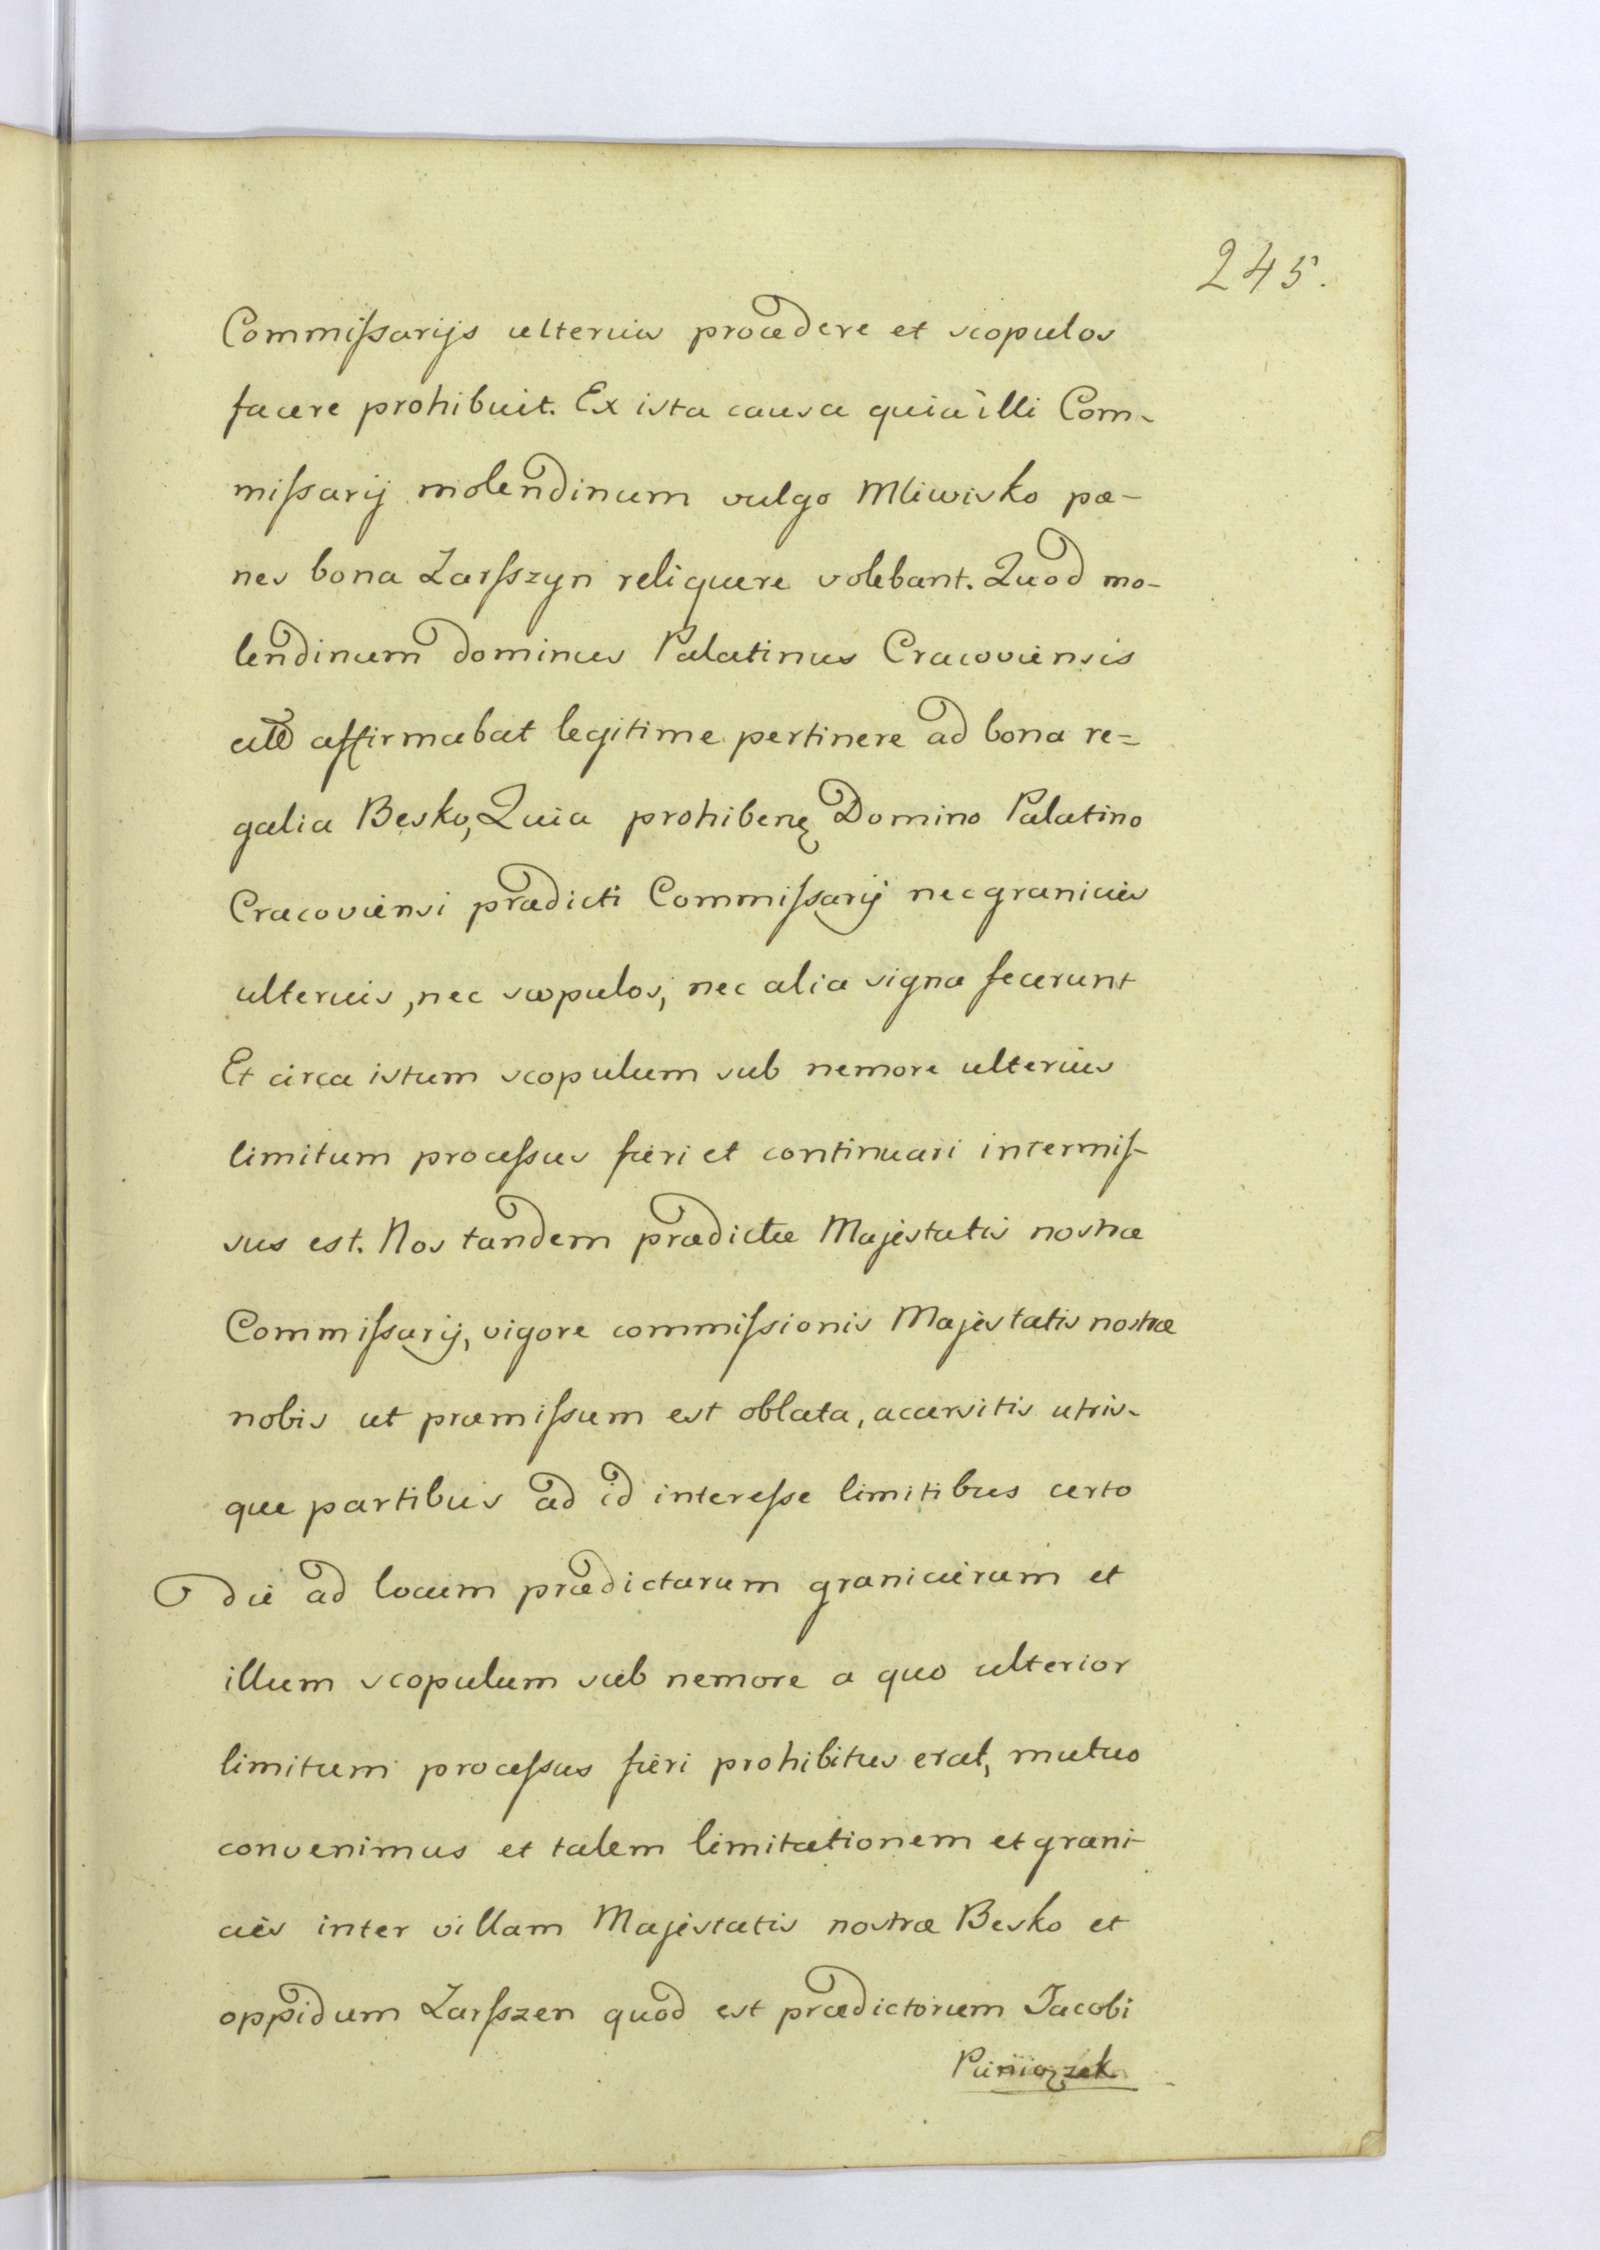 245.
Commiſsarijs ulterius procedere et scopulos
facere prohibuit. Ex ista causa quia illi Com-
miſsarij molendinum vulgo Mliwisko pæ-
nes bona Zarſszyn reliquere volebant. Quod mo-
lendinum dominus Palatinus Cracoviensis
affirmabat legitime pertinere ad bona re=
galia Besko, Quia prohibenę Domino Palatino
Cracoviensi prædicti Commiſsarij nec granicies
ulterius, nec scopulos, nec alia signa fecerunt
Et circa istum scopulum sub nemore ulterius
limitum proceſsus fieri et continuari intermiſ-
sus est. Nos tandem prædictæ Majestatis nostræ
Commiſsarij, vigore commiſsionis Majestatis nostræ
nobis ut præmiſsum est oblata, accersitis utris-
que partibus ad id intereſse limitibus certo
die ad locum prædictarum granicierum et
illum scopulum sub nemore a quo ulterior
limitum proceſsus fieri prohibitus erat, mutuo
convenimus et talem limitationem et grani-
cies inter villam Majestatis nostræ Besko et
oppidum Zarſszen quod est prædictorum Jacobi
Pieniązek